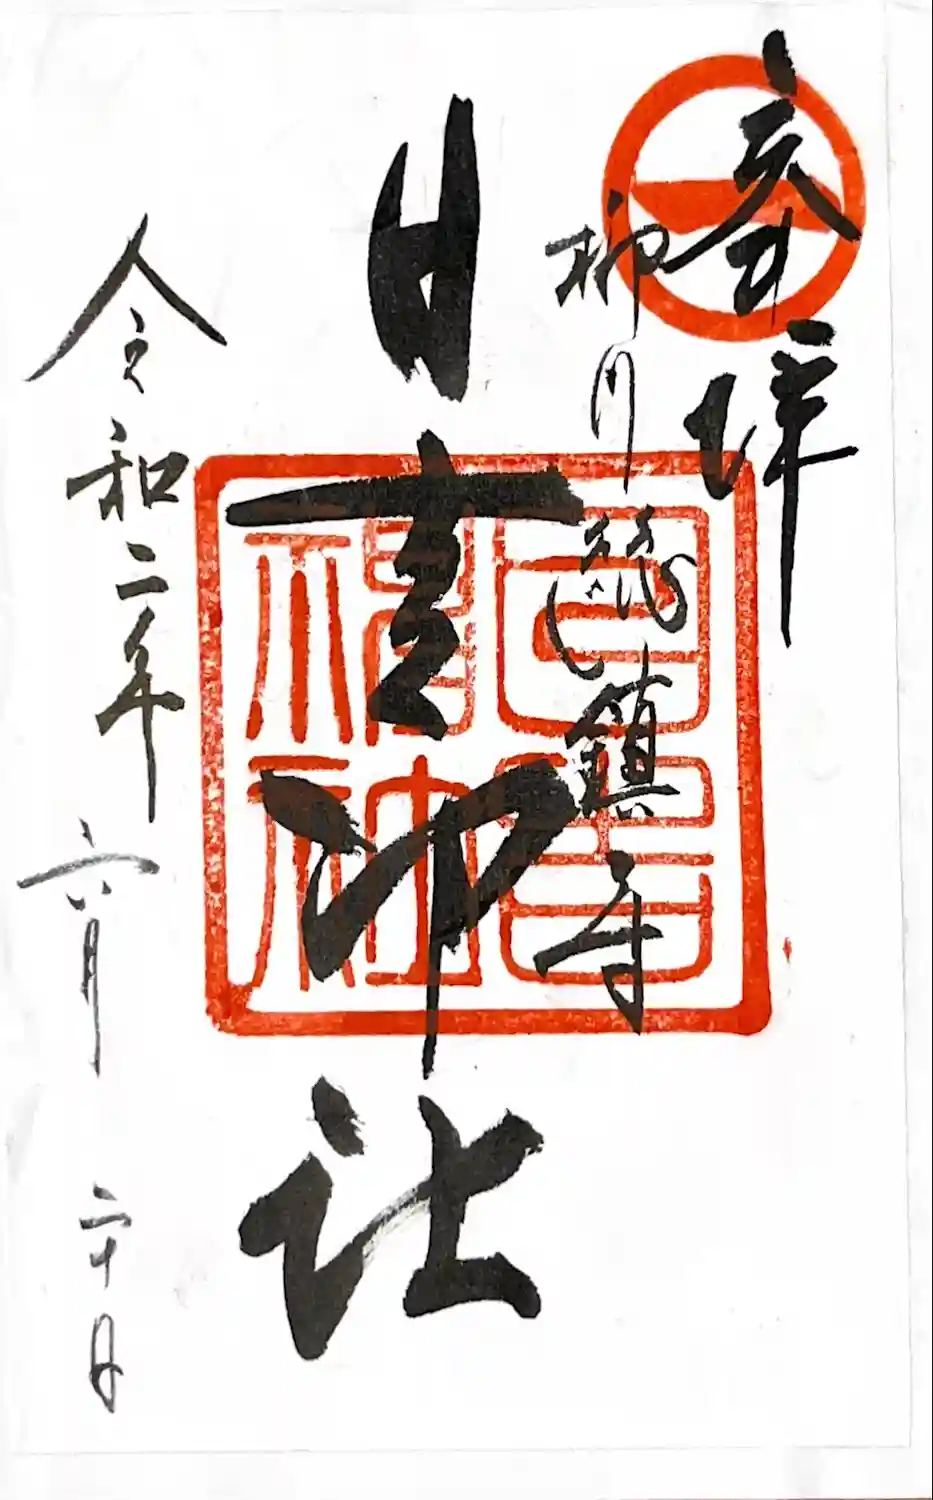 参拝
柳川総鎮守
日吉神社
令和二年六月二十日
日吉
神社